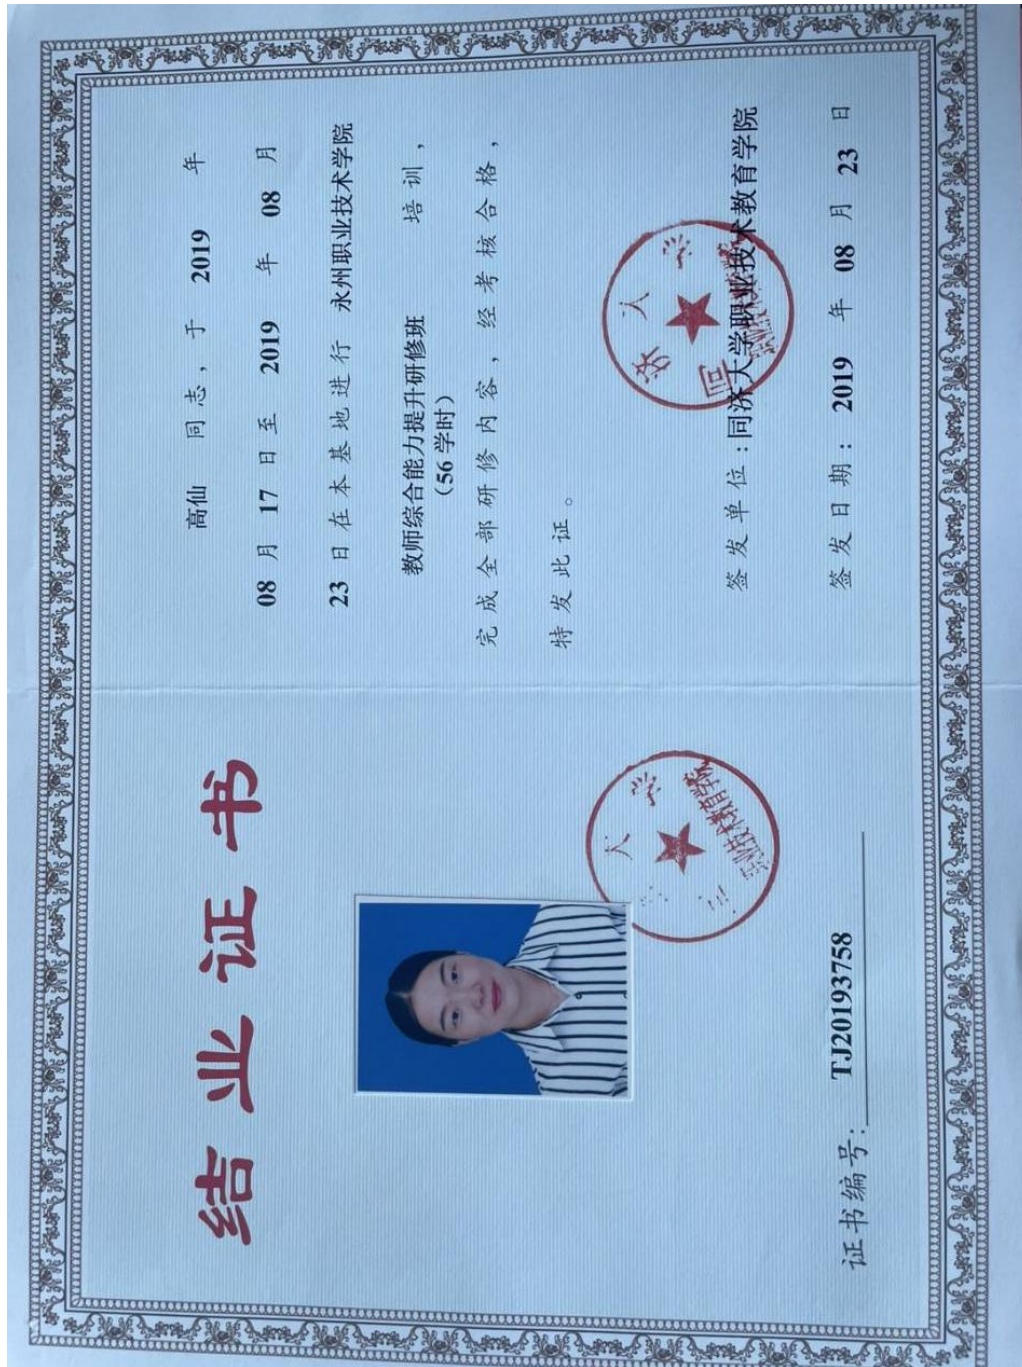 结业证书
证书编号：TJ20193758
高仙 同志，于 2019 年
08 月 17 日至 2019 年 08 月
23 日在本基地进行 永州职业技术学院
教师综合能力提升研修班 培训，
（56 学时）
完成全部研修内容，经考核合格，
特发此证。
签发单位：同济大学职业技术教育学院
签发日期：2019 年 08 月 23 日